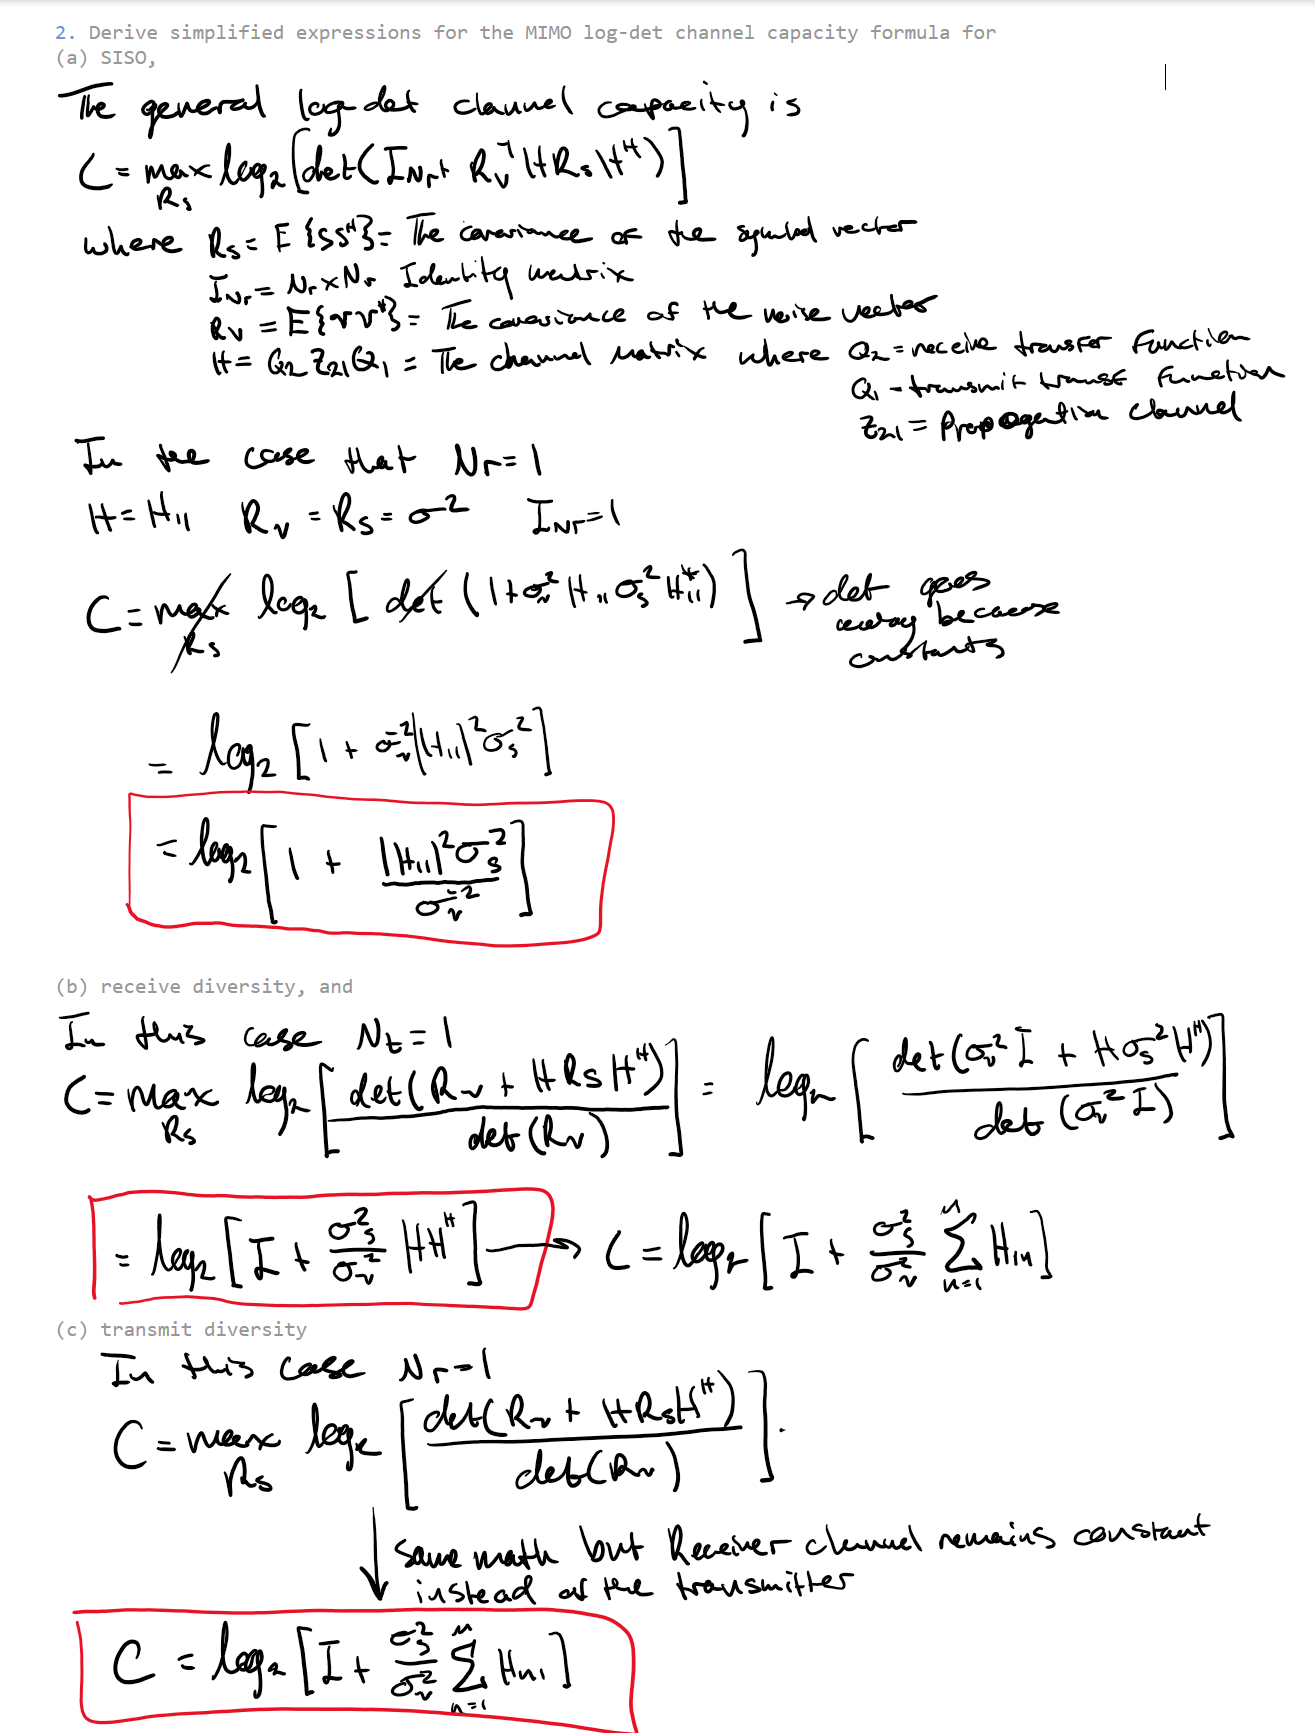 2. Derive simplified expressions for the MIMO log-det channel capacity formula for
(a) SISO,
The general log-det channel capacity is
C = max_{Rs} log₂[det(I_{Nr} + R_v^{-1} H Rs H^H)]
where Rs = E{ss^H} = The covariance of the symbol vector
I_{Nr} = Nr x Nr Identity matrix
Rv = E{vv^H} = The covariance of the noise vector
H = Q2 Z21 Q1 = The channel matrix where Q2 = receive transfer function
Q1 - transmit transf function
Z21 = Propogation channel
In the case that Nr = 1
H = H11 Rv = Rs = σ² I_{Nr} = 1
C = max_{Rs} log₂[det(1 + σ_v^{-2} H11 σ_s² H11^*)] → det goes
away because
constants
= log₂[1 + σ_v^{-2} |H11|² σ_s²]
= log₂[1 + |H11|² σ_s² / σ_v^{-2}]
(b) receive diversity, and
In this case Nt = 1
C = max_{Rs} log₂[det(Rv + H Rs H^H) / det(Rv)] = log₂[det(σ_v² I + H σ_s² H^H) / det(σ_v² I)]
= log₂[I + σ_s²/σ_v² HH^H] → C = log₂[I + σ_s²/σ_v² Σ_{n=1}^{n} H_{1n}]
(c) transmit diversity
In this case Nr = 1
C = max_{Rs} log₂[det(Rv + H Rs H^H) / det(Rv)].
↓ same math but Receiver channel remains constant
instead of the transmitter
C = log₂[I + σ_s²/σ_v² Σ_{n=1}^{n} H_{n1}]